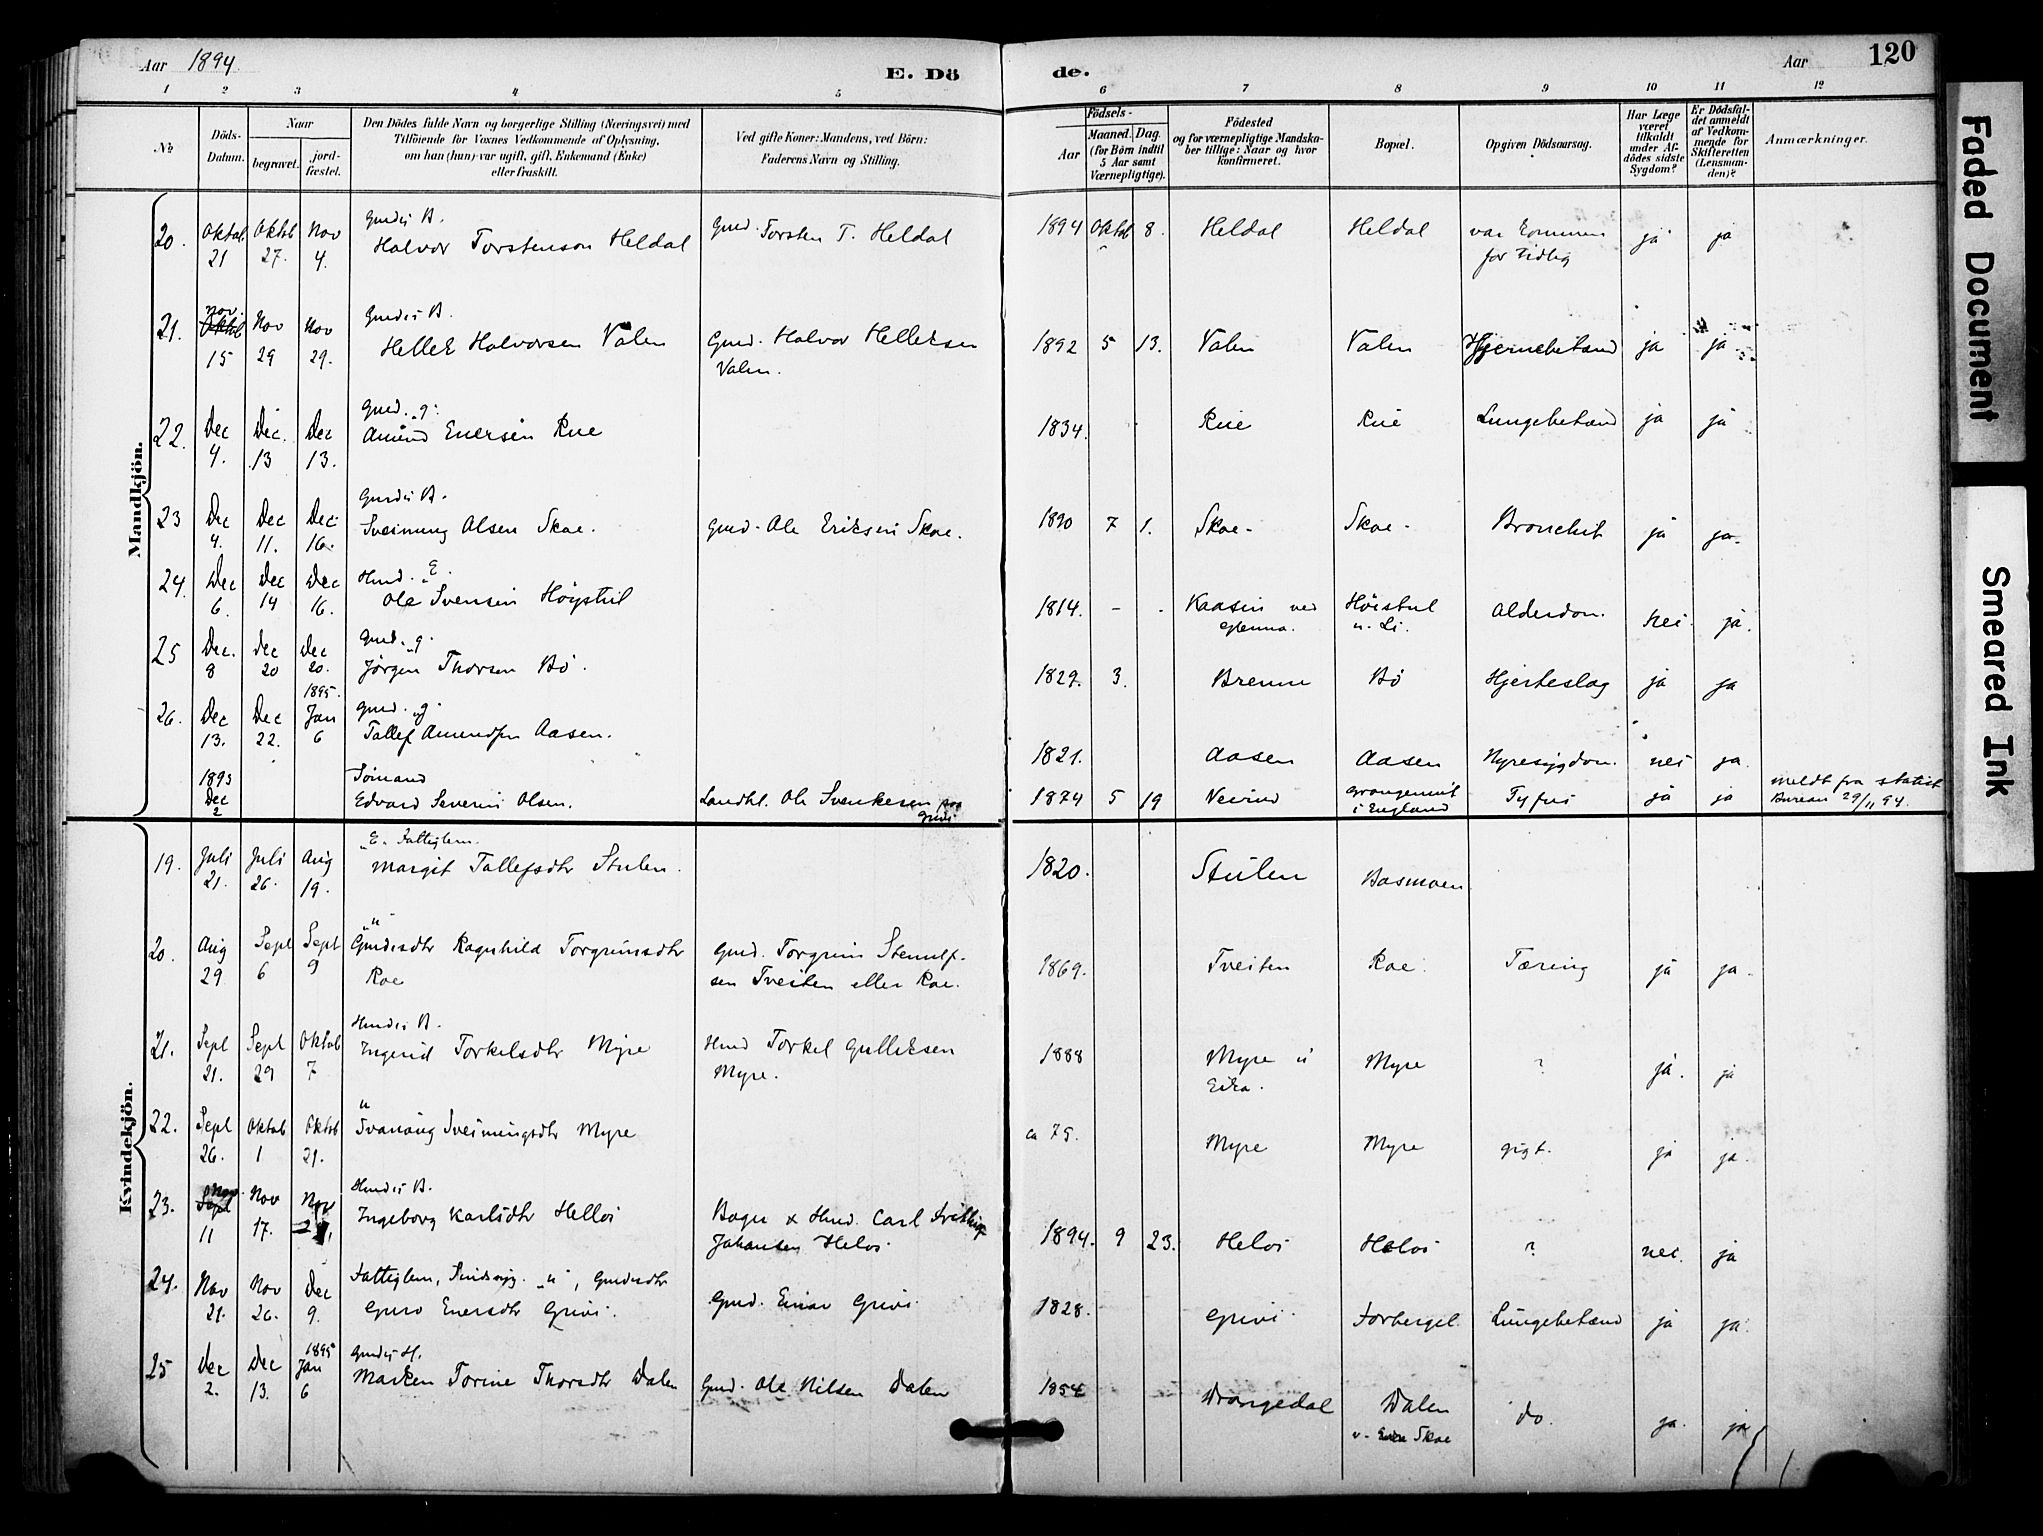 Aar 1894.
E. Dö
de.
Aar
120
1 2 3 4 5 6 7 8 9 10 11 12
No
Döds-
Datum.
Naar
begravet.
jord-
fæstet.
Den Dödes fulde Navn og borgerlige Stilling (Næringsvei) med
Tilföiende for Voxnes Vedkommende af Oplysning,
om han (hun) var ugift, gift, Enkemand (Enke)
eller fraskilt.
Ved gifte Koner: Mandens, ved Börn:
Faderens Navn og Stilling.
Födsels-
Aar
Maaned. Dag.
(for Börn indtil
5 Aar samt
Værnepligtige).
Födested
og for værnepligtige Mandska-
ber tillige: Naar og hvor
konfirmeret.
Bopæl.
Opgiven Dödsaarsag.
Har Læge
været
tilkaldt
under Af-
dödes sidste
Sygdom?
Er Dödsfal-
det anmeldt
af Vedkom-
mende for
Skifteretten
(Lensman-
den)?
Anmærkninger.
Mandkjön.
20. Oktob 21 Oktob 27. Nov 4. Gmds B.
Halvor Torstenson Heldal Gmd. Torsten T. Heldal 1894 Oktob 8. Heldal Heldal var kommen
for tidlig ja ja
21. Nov. Oktob 15 Nov 29 Nov 29. Gmds B.
Hellek Halvorsen Valen Gmd. Halvor Helleksen
Valen. 1892 5 13. Valen Valen Hjernebetænd ja ja
22. Dec 4. Dec. 13 Dec 13. Gmd. g.
Amund Enersen Rue 1834. Rue Rue Lungebetænd ja ja
23 Dec 4. Dec 11. Dec 16. Gmds B.
Sveinung Olsen Skoe. Gmd. Ole Eriksen Skoe. 1890 7 1. Skoe. Skoe. Bronchit ja ja.
24. Dec 6. Dec 14 Dec 16. Hmd. E.
Ole Svensen Høystul 1814. - . Kaasin ved Høistul
u. Li. Alderdom. nei ja.
25 Dec. 8 Dec 20 Dec 20. Gmd. g.
Jørgen Thorsen Bö. 1829. 3. Brenne Bö Hjerteslag ja ja
26. Dec 13. Dec 22. 1895. Jan 6 Gmd. g.
Tallef Amundsen Aasen. 1821. Aasen Aasen Nyresygdom. nei ja.
1893
Dec 2 Sömand
Edvard Severin Olsen. Landhl. Ole Svenkesen paa
Grivi 1874 5 19 Grangemout
i England Tyfus ja ja meldt fra statist
Bureau 29/11 94.
Kvindekjön.
19. Juli 21. Juli 26. Aug 19. E. Fattiglem.
Margit Tallefsdtr Stulen. 1820. Stulen Bosmoen
20. Aug 29 Sept 6 Sept 9 "u"
Gmdsdtr Ragnhild Torgrimsdtr
Roe Gmd. Torgrim Stenulf-
sen Tveiten eller Roe. 1869. Tveiten Roe. Tæring ja ja.
21. Sept 21. Sept 29 Oktob 7 Hmds B.
Ingerid Torkelsdtr Myre Hmd Torkel Gulliksen
Myre. 1888 Myre u
Eika. Myre ? ja. ja
22. Sept 26. Oktob 1 Oktob 21. u
Tvanaug Sveinungsdtr Myre ca 75. Myre Myre gigt. ja ja.
23. Nov. Sept 11 Nov 17. Nov Hmds B.
Ingeborg Karlsdtr Helloi Bager & Hmd. Carl
Johansen Heloi. 1894. 9 23. Heloi Heloi ? nei. ja
24. Nov 21. Nov 26. Dec 9. Fattiglem, Sindssyg. "u", Gmdsdtr
Guro Enersdtr Grivi. Gmd. Einar Grivi. 1828. Grivi Forberget. Lungebetænd ja ja.
25 Dec 2. Dec 13. 1895 Jan 6 Gmds H.
Marken Torine Thorsdtr Dalen Gmd. Ole Nilsen Dalen 1854 Drangedal Dalen
u. Skoe do. ja. ja
Faded Document
Smeared Ink